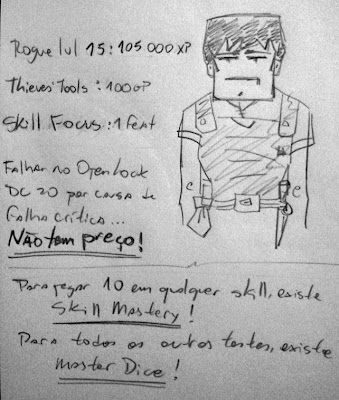 Rogue lvl 15: 105 000 XP
Thieves' Tools: 100 GP
Skill Focus: 1 Feat
Falhar no Open Lock
DC 20 por causa de
falha crítica...
Não tem preço!
Para pegar 10 em qualquer skill, existe
Skill Mastery!
Para todos os outros testes, existe
Master Dice!